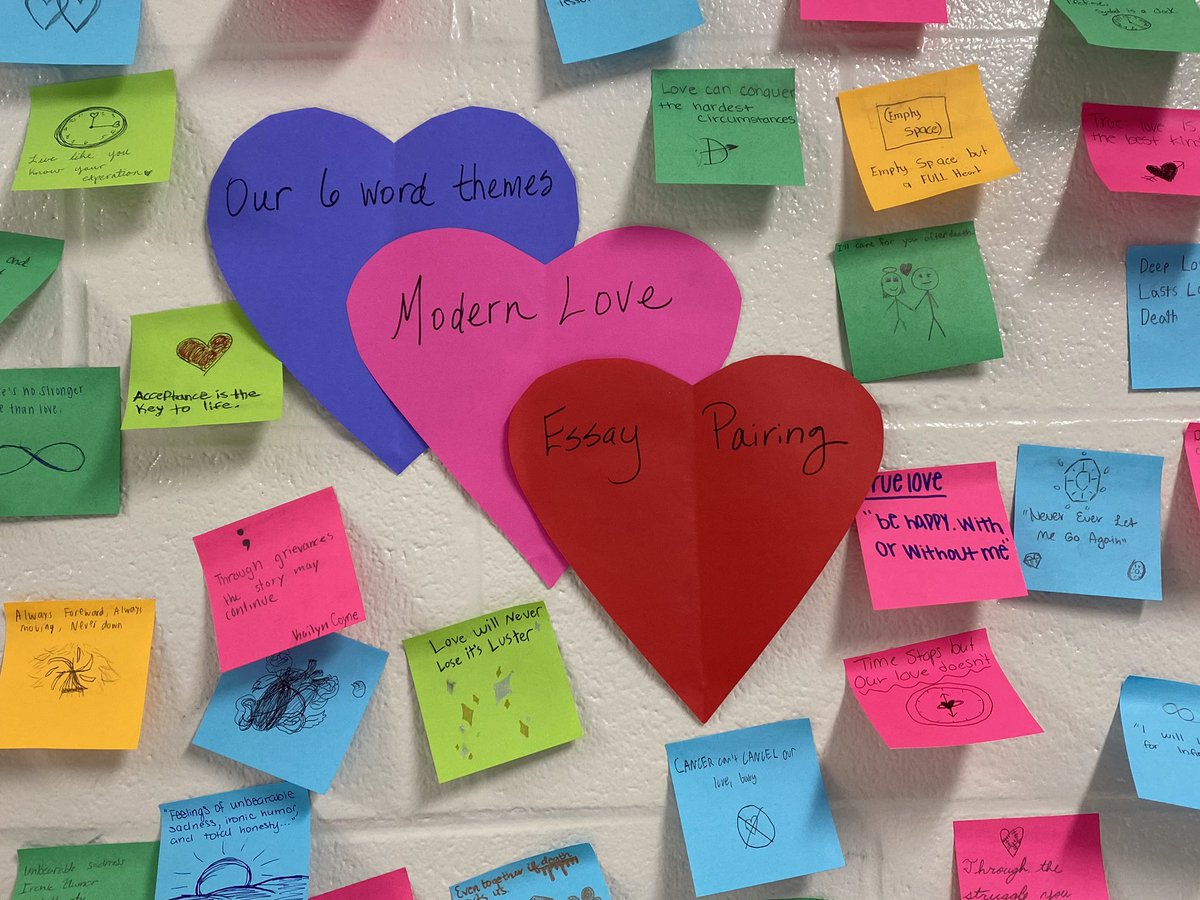 Our 6 word themes
Modern Love
Essay Pairing
Live like you
know your experation
Love can conquer
the hardest
circumstances
(Empty
Space)
Empty Space but
a FULL Heart
True love is
the best kin
I'll care for you after death
and
Acceptance is the
Key to life.
no stronger
than love.
Deep Lo
Lasts Lo
Death
True love
"be happy. With
or without me"
"Never Ever Let
Me Go Again"
;
Through grievances
the story may
continue
Coyne
Always Foreward, Always
moving, Never down
Love will Never
Lose it's Luster
Time Stops but
Our love doesn't
CANCER can't CANCEL our
love, baby
"I will
for infi
"Feelings of unbearable
sadness, ironic humor,
and total honesty..."
Unbearable sadness
Ironic Humor
Even together if death
us.
Through the
struggle you
symbol is a clock